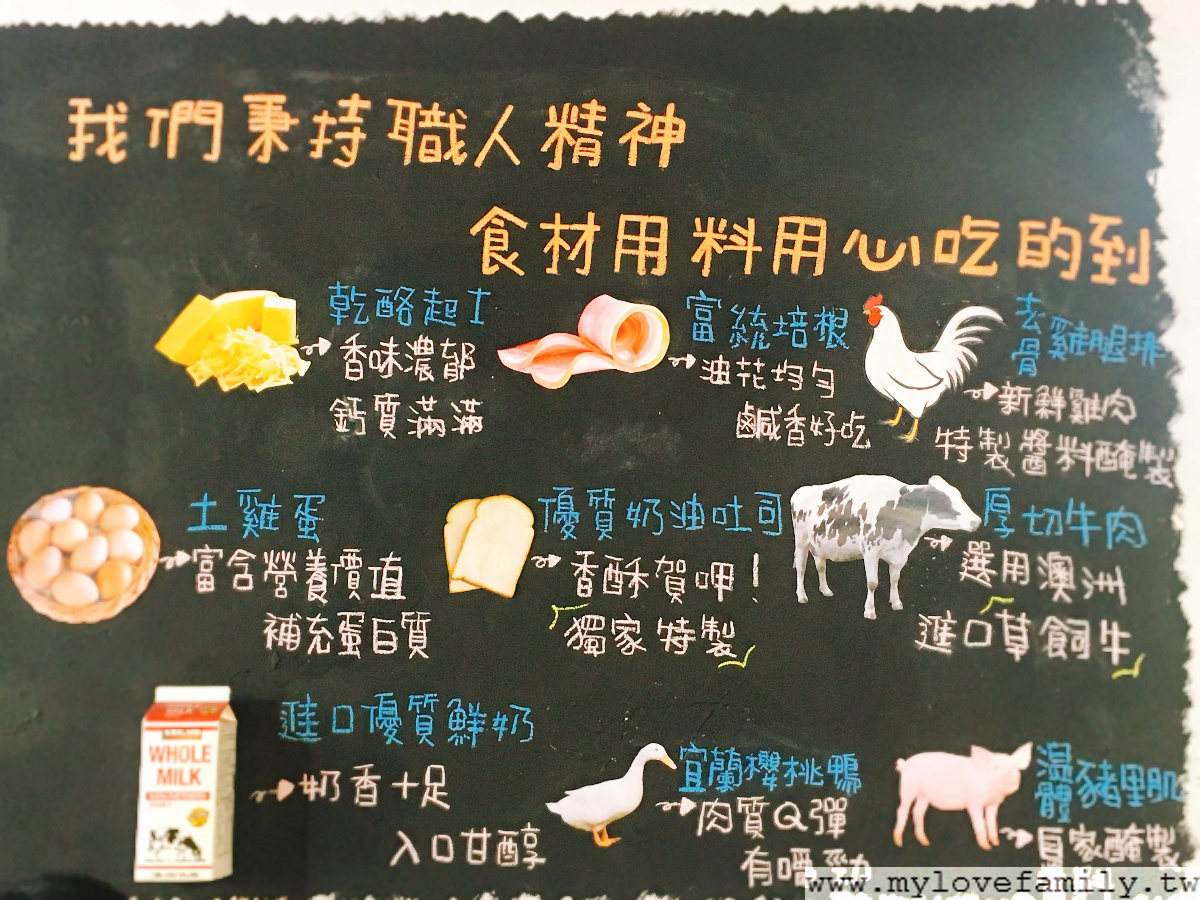 我們秉持職人精神
食材用料用心吃的到
乾酪起士
香味濃郁
鈣質滿滿
富統培根
油花均勻
鹹香好吃
去骨雞腿排
新鮮雞肉
特製醬料醃製
土雞蛋
富含營養價值
補充蛋白質
優質奶油吐司
香酥賀呷！
獨家特製
厚切牛肉
選用澳洲
進口草飼牛
進口優質鮮奶
奶香十足
入口甘醇
WHOLE
MILK
宜蘭櫻桃鴨
肉質Q彈
有嚼勁
溫體豬里肌
自家醃製
www.mylovefamily.tw